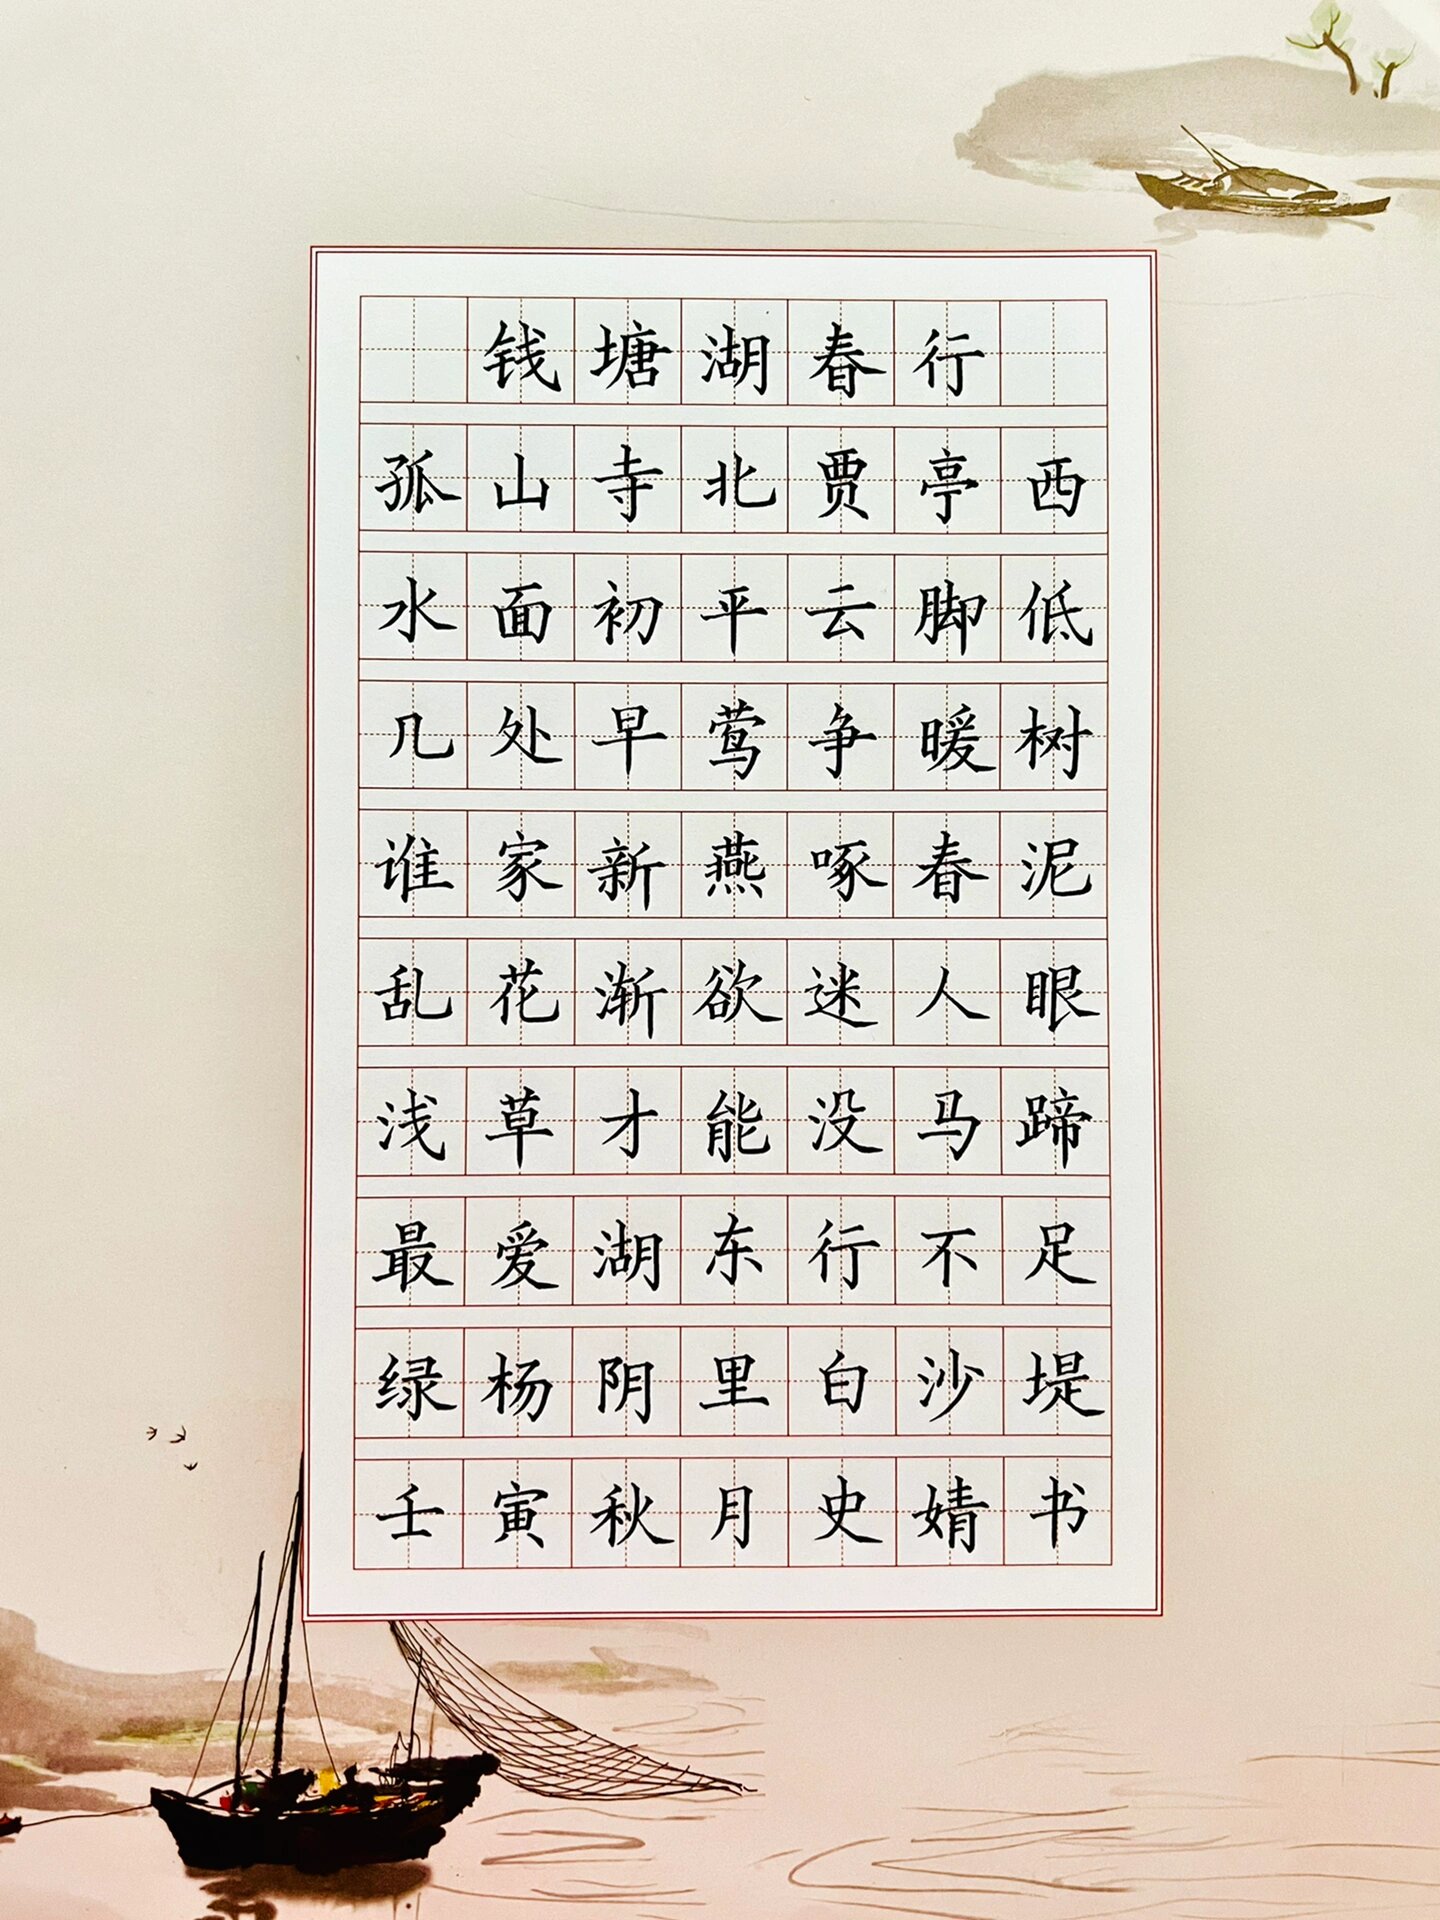 钱塘湖春行
孤山寺北贾亭西
水面初平云脚低
几处早莺争暖树
谁家新燕啄春泥
乱花渐欲迷人眼
浅草才能没马蹄
最爱湖东行不足
绿杨阴里白沙堤
壬寅秋月史婧书